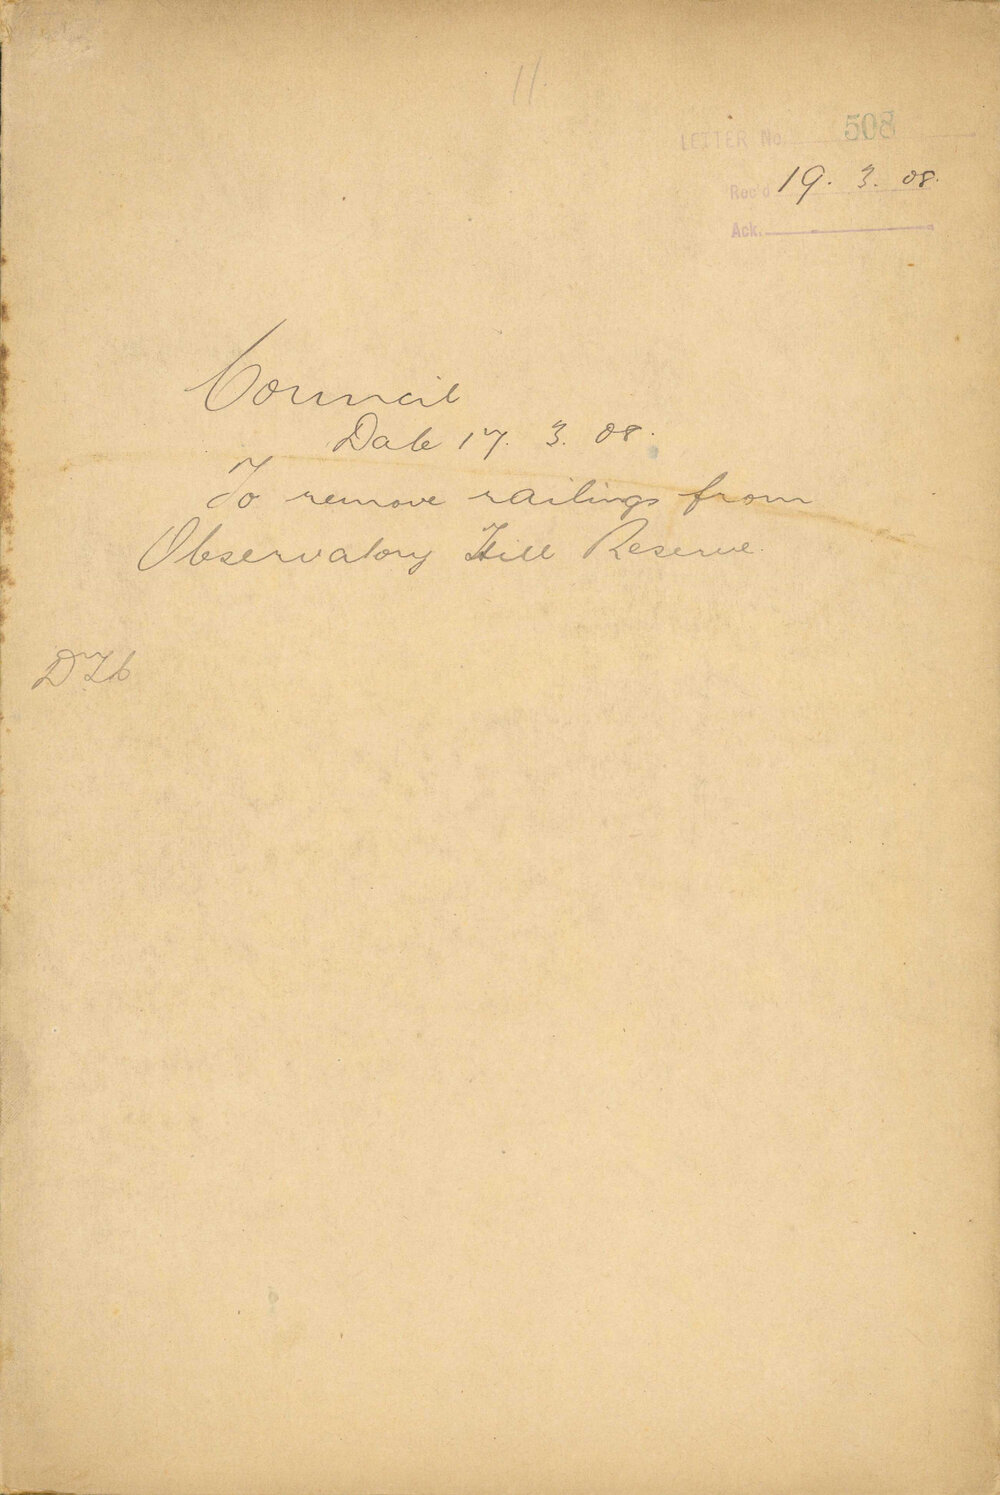 11
LETTER No. 508
Rec'd 19. 3. 08.
Ack.
Council
Date 17. 3. 08.
To remove railings from
Observatory Hill Reserve.